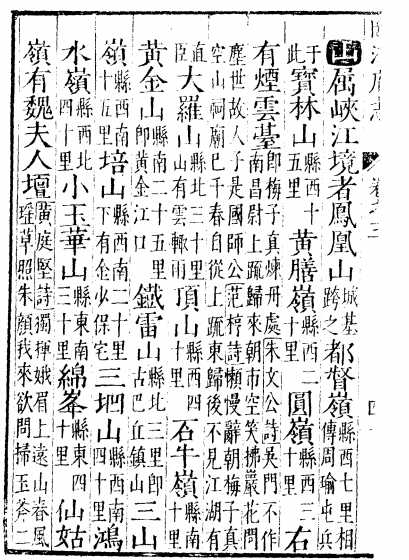 屬峽江境者鳳凰山城基跨之都督嶺縣西七里相傳周瑜屯兵
于此寶林山縣西十五里黃膳嶺縣西二十里圓嶺縣西三十里右
有煙雲臺即梅子真煉丹處朱文公詩吳門不作南昌尉上疏歸來朝市空笑拂巖花問
塵世故人子是國師公范梈詩懶慢辭朝梅子真空山祠廟巳千春自從上疏東歸後不見江湖有
直臣大羅山縣北三十里山有雲輙雨頂山縣西四十里石牛嶺縣南十里
黃金山縣南二十五里即黃金江口鐵雷山縣北三里即古巴丘鎮山三山
嶺縣西南十五里培山縣西南二十里下有金少保宅三山縣西南四十里鴻
水嶺縣西北四十里小玉華山縣東南三十里綿峯縣東四十里仙姑
嶺有魏夫人壇黃庭堅詩獨揮娥眉上遠山春風瑤草照朱顏我來欲問掃玉斧二